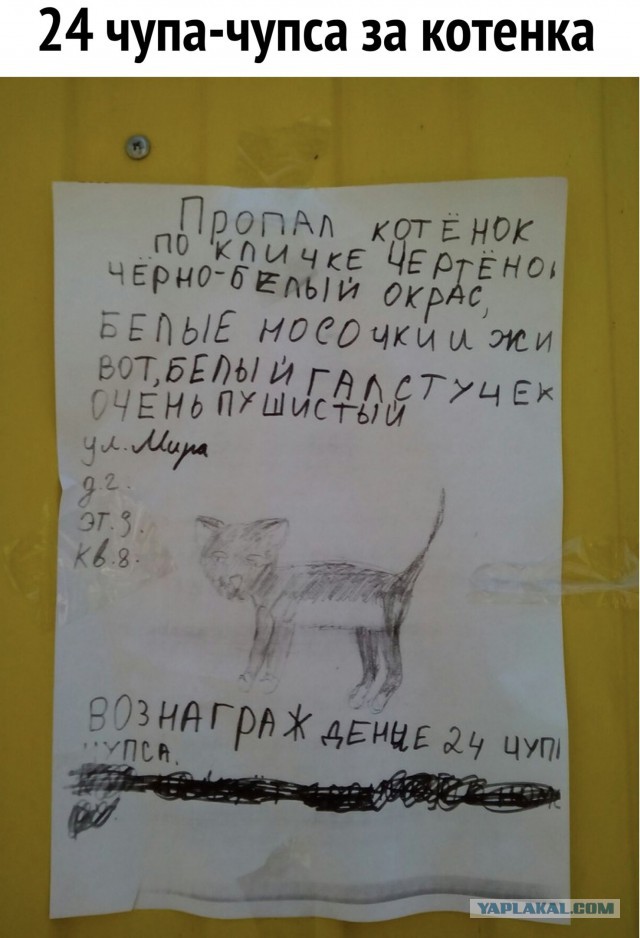 24 чупа-чупса за котенка
ПРОПАЛ КОТЁНОК
ПО КЛИЧКЕ ЧЕРТЁНО
ЧЁРНО-БЕЛЫЙ ОКРАС,
БЕЛЫЕ НОСОЧКИ И ЖИ
ВОТ, БЕЛЫЙ ГАЛСТУЧЕК
ОЧЕНЬ ПУШИСТЫЙ
ул. Мира
д.2.
эт.3.
кв.8.
ВОЗНАГРАЖДЕНИЕ 24 ЧУП
ЧУПСА.
YAPLAKAL.COM